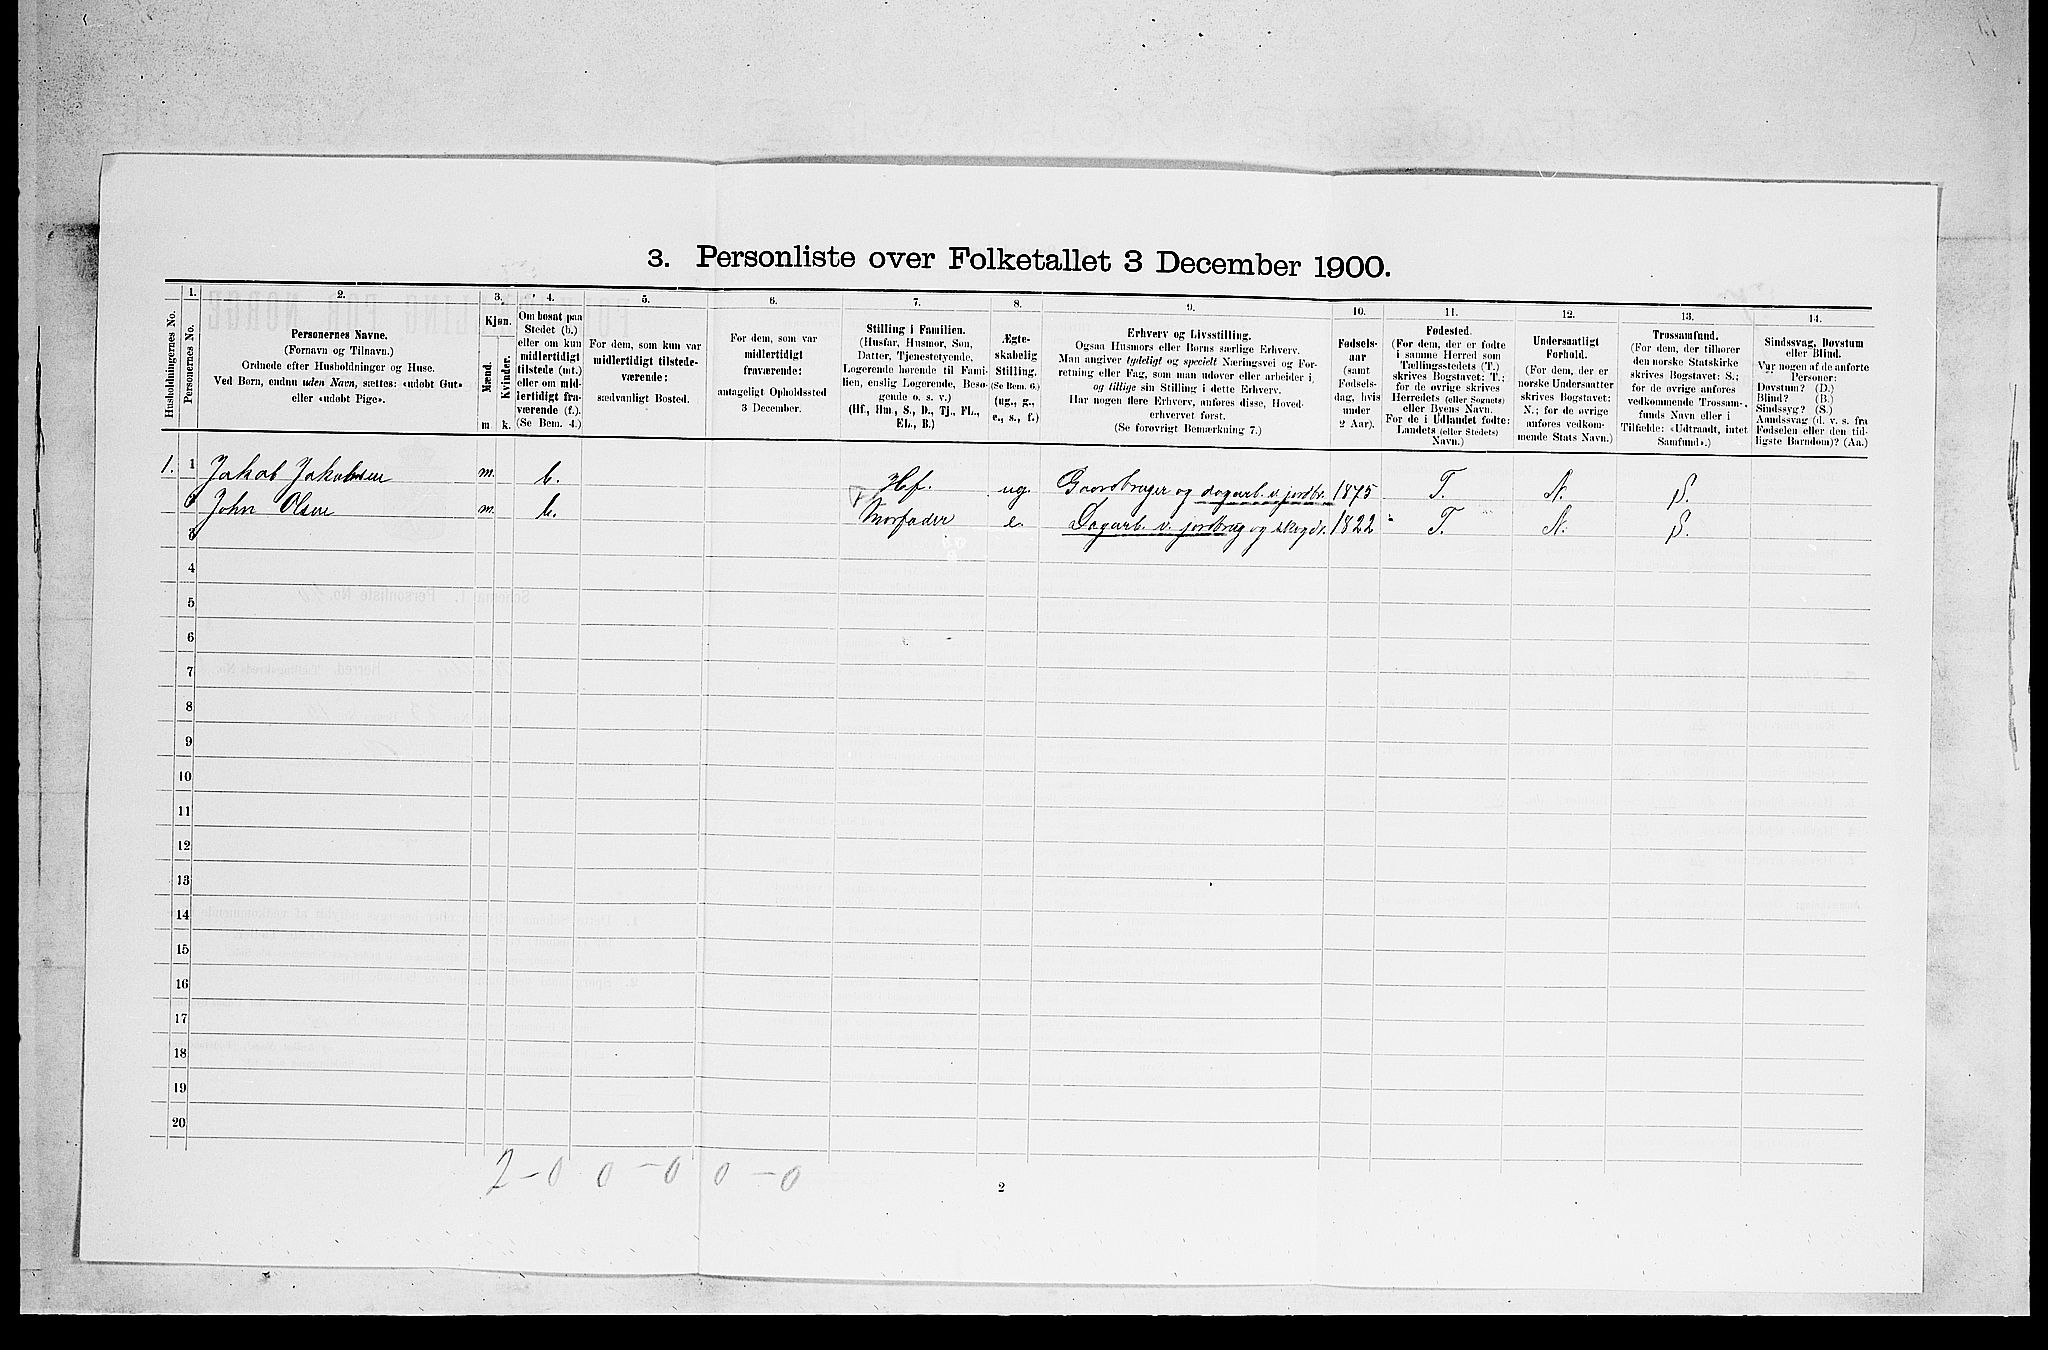 3. Personliste over Folketallet 3 December 1900.
1. 2. 3. 4. 5. 6. 7. 8. 9. 10. 11. 12. 13. 14.
Husholdningernes No.
Personernes No.
Personernes Navne.
(Fornavn og Tilnavn.)
Ordnede efter Husholdninger og Huse.
Ved Børn, endnu uden Navn, sættes: «udøbt Gut»
eller «udøbt Pige».
Kjøn.
Mænd.
Kvinder.
m. k.
Om bosat paa
Stedet (b.)
eller om kun
midlertidigt
tilstede (mt.)
eller om mid-
lertidigt fra-
værende (f.).
(Se Bem. 4.)
For dem, som kun var
midlertidigt tilstede-
værende:
sædvanligt Bosted.
For dem, som var
midlertidigt
fraværende:
antageligt Opholdssted
3 December.
Stilling i Familien.
(Husfar, Husmor, Søn,
Datter, Tjenestetyende,
Logerende hørende til Fami-
lien, enslig Logerende, Besø-
gende o. s. v.)
(Hf., Hm., S., D., Tj., FL.,
EL., B.)
Ægte-
skabelig
Stilling.
(Se Bem. 6.)
(ug., g.,
e., s., f.)
Erhverv og Livsstilling.
Ogsaa Husmors eller Børns særlige Erhverv.
Man angiver tydeligt og specielt Næringsvei og For-
retning eller Fag, som man udøver eller arbeider i,
og tillige sin Stilling i dette Erhverv.
Har nogen flere Erhverv, anføres disse, Hoved-
erhvervet først.
(Se forøvrigt Bemærkning 7.)
Fødsels-
aar
(samt
Fødsels-
dag, hvis
under
2 Aar).
Fødested.
(For dem, der er fødte
i samme Herred som
Tællingsstedets (T.)
skrives Bogstavet: T.;
for de øvrige skrives
Herredets (eller Sognets)
eller Byens Navn.
For de i Udlandet fødte:
Landets (eller Stedets)
Navn.)
Undersaatligt
Forhold.
(For dem, der er
norske Undersaatter
skrives Bogstavet:
N.; for de øvrige
anføres vedkom-
mende Stats Navn.)
Trossamfund.
(For dem, der tilhører
den norske Statskirke
skrives Bogstavet: S.;
for de øvrige anføres
vedkommende Trossam-
funds Navn eller i
Tilfælde: «Udtraadt, intet
Samfund».)
Sindssvag, Døvstum
eller Blind.
Var nogen af de anførte
Personer:
Døvstum? (D.)
Blind? (B.)
Sindssyg? (S.)
Aandssvag (d. v. s. fra
Fødselen eller den tid-
ligste Barndom)? (Aa.)
1. 1 Jakob Jakobsen m. b. Hf. ug. Gaardbruger og dagarb. v. jordbr. 1875 T. N. S.
2 John Olsen m. b. Morfader e. Dagarb. v. jordbrug og skogdr. 1822 T. N. S.
3
4
5
6
7
8
9
10
11
12
13
14
15
16
17
18
19
20
2 - 0 0 - 0 0 - 0
2